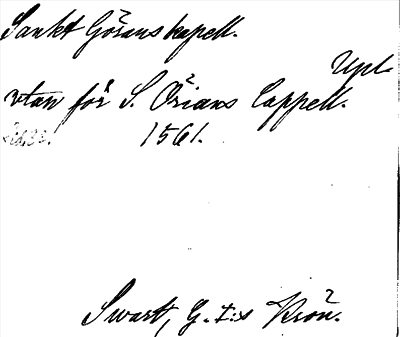 Sankt Görans kapell.
Upl.
vtan för S. Örians Cappell.
1561.
Swart, G. I:s Krön.